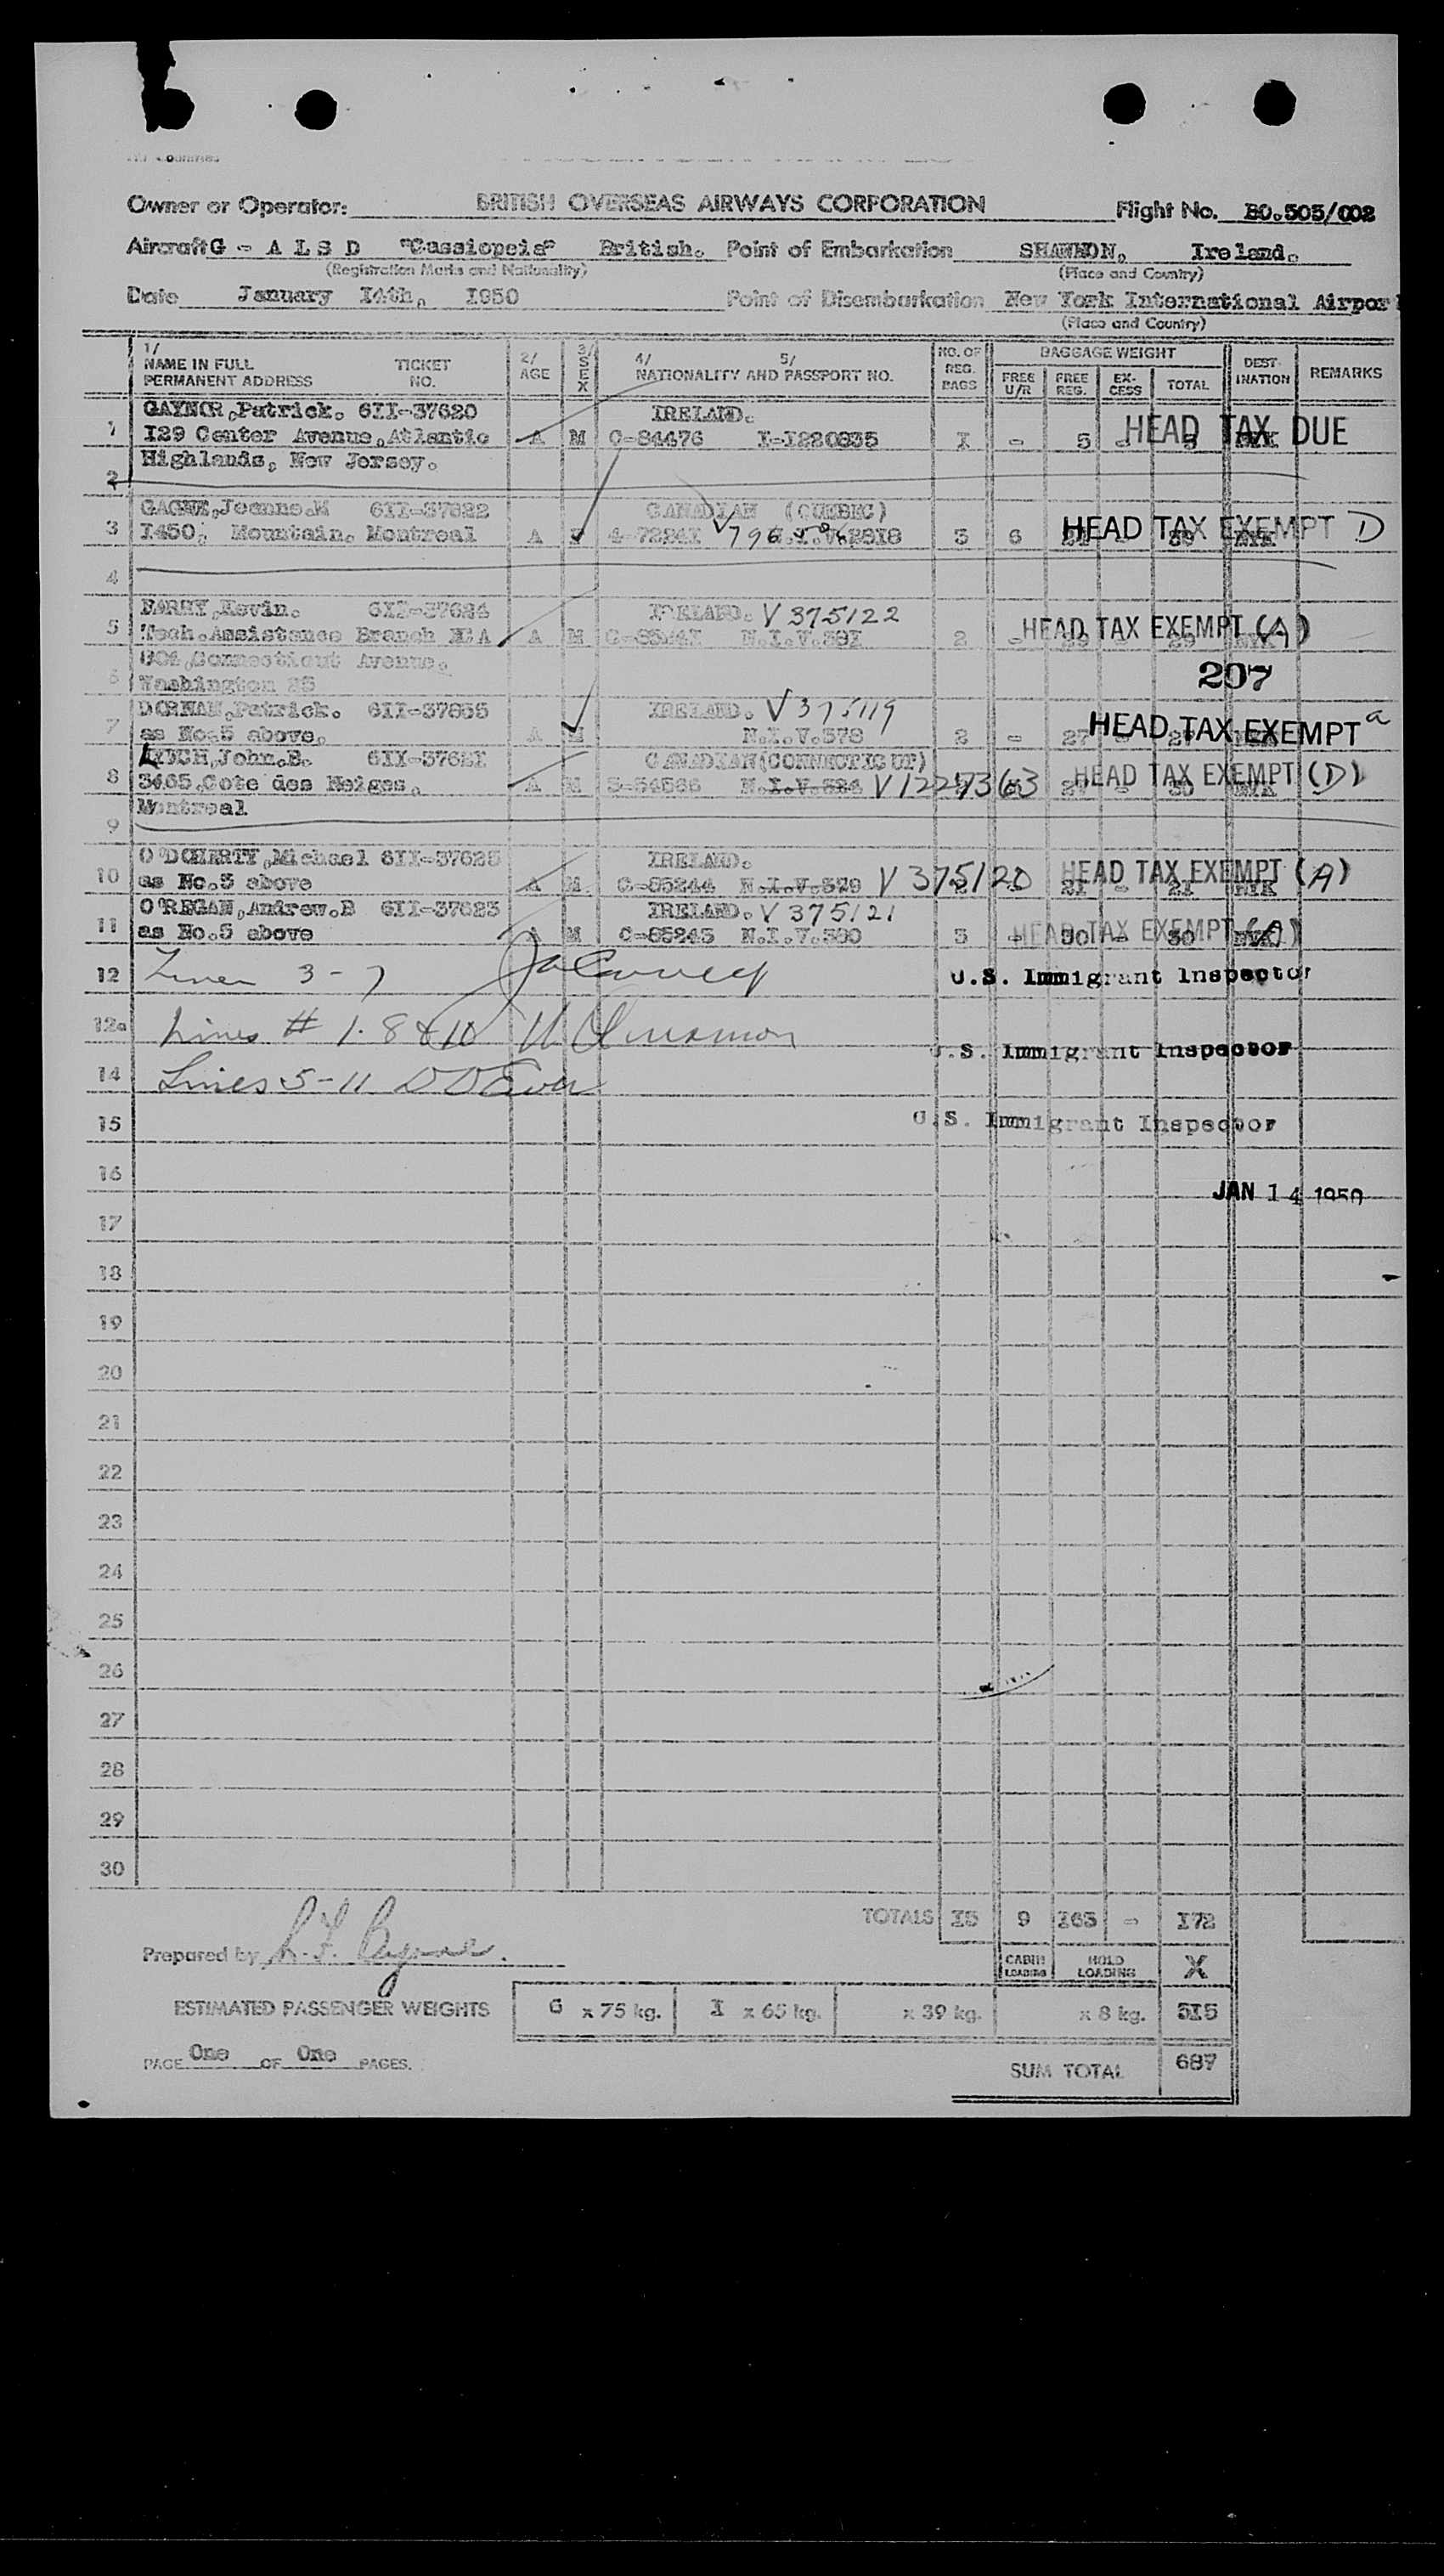 Owner or Operator: BRITISH OVERSEAS AIRWAYS CORPORATION Flight No. BO.505/002
Aircraft G - A L S D "Cassiopeia" British. Point of Embarkation SHANNON, Ireland.
(Registration Marks and Nationality) (Place and Country)
Date January I4th, I950 Point of Disembarkation New York International Airpor
(Place and Country)
1/ NAME IN FULL PERMANENT ADDRESS TICKET NO. 2/ AGE 3/ SEX 4/ 5/ NATIONALITY AND PASSPORT NO. NO. OF REG. BAGS BAGGAGE WEIGHT FREE U/R FREE REG. EX-CESS TOTAL DEST-INATION REMARKS
GAYNOR,Patrick. 6II-37620 IRELAND.
1 I29 Center Avenue,Atlantic A M C-84476 I-I220835 I - 5 - HEAD TAX DUE
Highlands, New Jersey.
2
GAGNE,Jeanne.M 6II-37622 CANADIAN (QUEBEC)
3 I450, Mountain. Montreal A 4-7224I 3 6 HEAD TAX EXEMPT D
4
BARRY,Kevin. 6II-37624 IRELAND. V 375122
5 Tech.Assistance Branch ECA A M N.I.V.58I 2 - 29 HEAD TAX EXEMPT (A)
Connecticut Avenue.
6 Washington 25 207
DORNAN,Patrick. 6II-37835 IRELAND. V 375119
7 as No.5 above. A M N.I.V.578 2 - 27 - 27 HEAD TAX EXEMPT a
LYNCH,John.B. 6II-3762I CANADIAN(CONNECTIC UT)
8 3465,Cote des Neiges. A M 5-54566 N.I.V.584 V1227363 HEAD TAX EXEMPT (D)
Montreal
9
O'DOHERTY,Michael 6II-37625 IRELAND.
10 as No.5 above A M C-85244 N.I.V.579 V 375120 21 - 21 HEAD TAX EXEMPT (A)
O'REGAN,Andrew.B 6II-37623 IRELAND. V 375121
11 as No.5 above A M C-85245 N.I.V.580 3 - 30 - 30 HEAD TAX EXEMPT (A)
12 Lines 3 - 7 U.S. Immigrant Inspector
12a Lines # 1. 8 & 10 U.S. Immigrant Inspector
14 Lines 5-11 U.S. Immigrant Inspector
15
16
JAN 14 1950
17
18
19
20
21
22
23
24
25
26
27
28
29
30
TOTALS I5 9 I63 - I72
Prepared by L.F. Byrne. CABIN LOADING HOLD LOADING X
ESTIMATED PASSENGER WEIGHTS 6 x 75 kg. I x 65 kg. x 39 kg. x 8 kg. 5I5
PAGE One OF One PAGES. SUM TOTAL 687